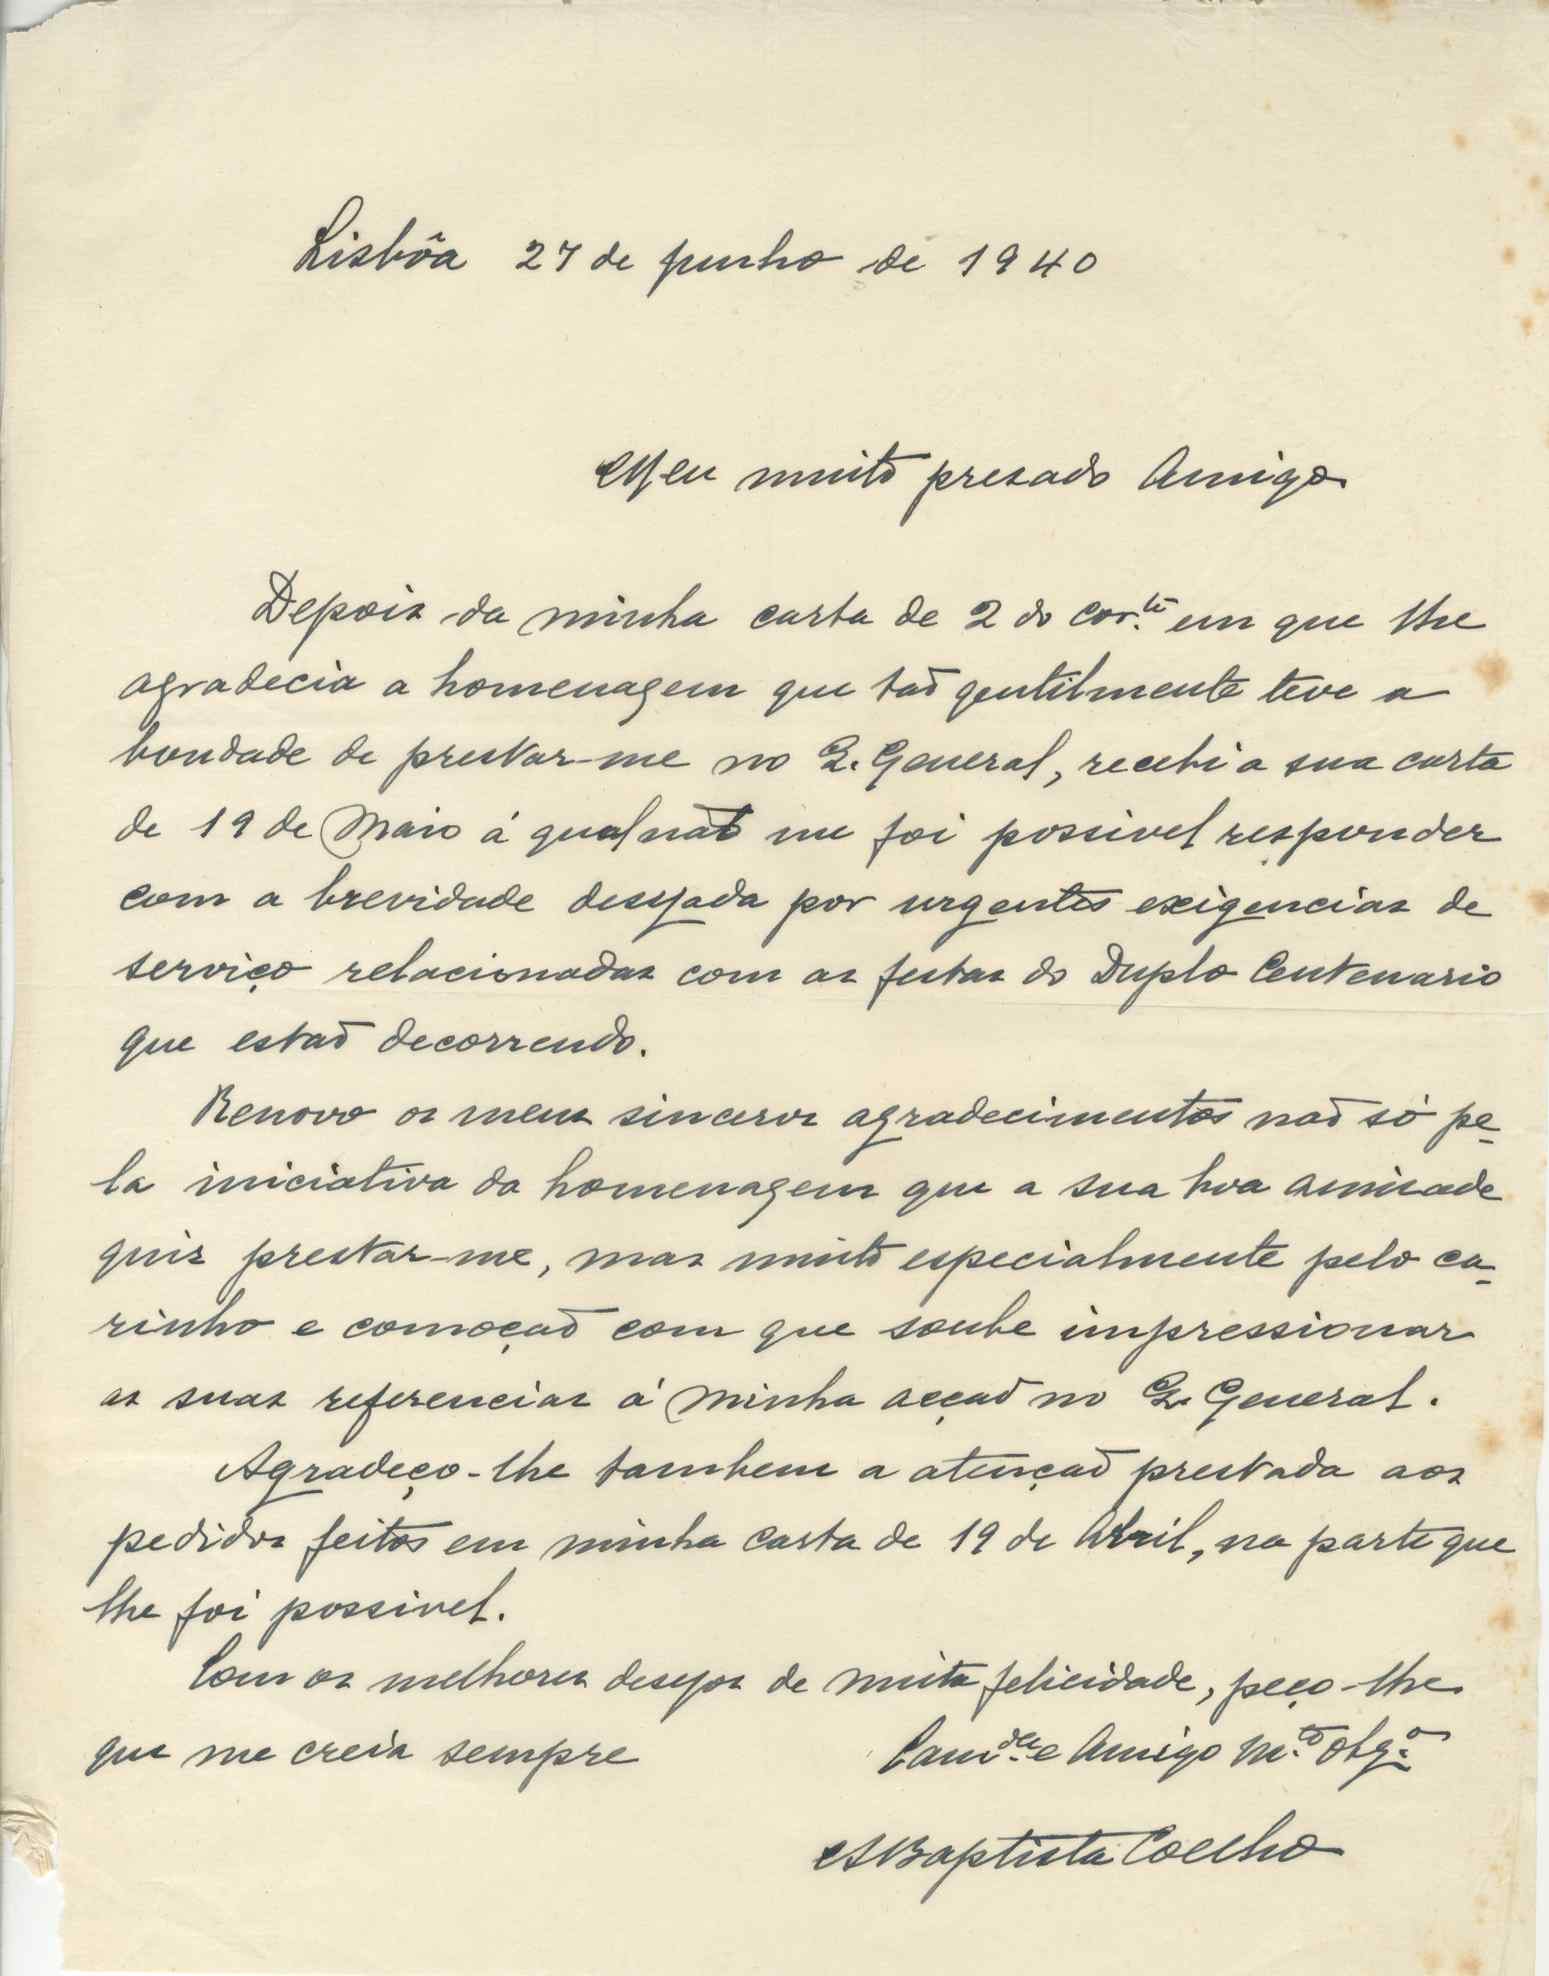 Lisbôa 27 de Junho de 1940
Meu muito presado Amigo
Depois da minha carta de 2 do cor.te em que lhe
agradecia a homenagem que taõ gentilmente teve a
bondade de prestar-me no Q. General, recebi a sua carta
de 19 de Maio á qual naõ me foi possivel responder
com a brevidade desejada por urgentes exigencias de
serviço relacionadas com as festas do Duplo Centenario
que estaõ decorrendo.
Renovo os meus sinceros agradecimentos naõ só pe-
la iniciativa da homenagem que a sua boa amisade
quis prestar-me, mas muito especialmente pelo ca-
rinho e comoçaõ com que soube impressionar
as suas referencias á minha acçaõ no Q. General.
Agradeço-lhe tambem a atençaõ prestada aos
pedidos feitos em minha carta de 19 de Abril, na parte que
lhe foi possivel.
Com os melhores desejos de muita felicidade, peço-lhe
que me creia sempre
Cam.da e Amigo M.to Obg.o
ABaptista Coelho